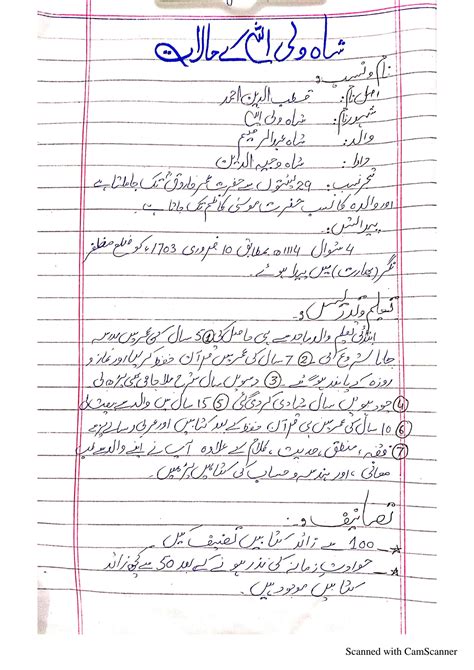 شاہ ولی اللہ کے حالات
نام و نسب:
اصل نام: قطب الدین احمد
مشہور نام: شاہ ولی اللہ
والد: شاہ عبدالرحیم
دادا: شاہ وجیہ الدین
شجر نسب: 29 پشتوں سے حضرت عمر فاروق تک جا ملتا ہے
اور والدہ کا نسب حضرت موسیٰ کاظم تک جاتا ہے۔
پیدائش:
4 شوال 1114ھ بمطابق 10 فروری 1703ء کو ضلع مظفر
نگر (بھارت) میں پیدا ہوئے۔
تعلیم و تدریس:
ابتدائی تعلیم والد ماجد سے ہی حاصل کی ① 5 سال کی عمر میں مدرسہ
جانا شروع کی ② 7 سال کی عمر میں قرآن حفظ کر لیا اور نماز و
روزہ کے پابند ہو گئے۔ ③ دسویں سال شرح ملا جامی بھی پڑھ لی
④ چودہویں سال شادی کر دی گئی ⑤ 15 سال میں والد سے بیعت کی
⑥ 10 سال کی عمر میں ہی قرآن حفظ کے بعد کتابیں اور عربی رسالے پڑھے
⑦ فقہ، منطق، حدیث، کلام کے علاوہ آپ نے اپنے والد سے طب
معانی، اور ہندسہ و حساب کی کتابیں پڑھیں۔
تصانیف:
100 سے زائد کتابیں تصنیف کیں
حوادث زمانے کی نذر ہونے کے بعد 50 سے کچھ زائد
کتابیں موجود ہیں۔
Scanned with CamScanner